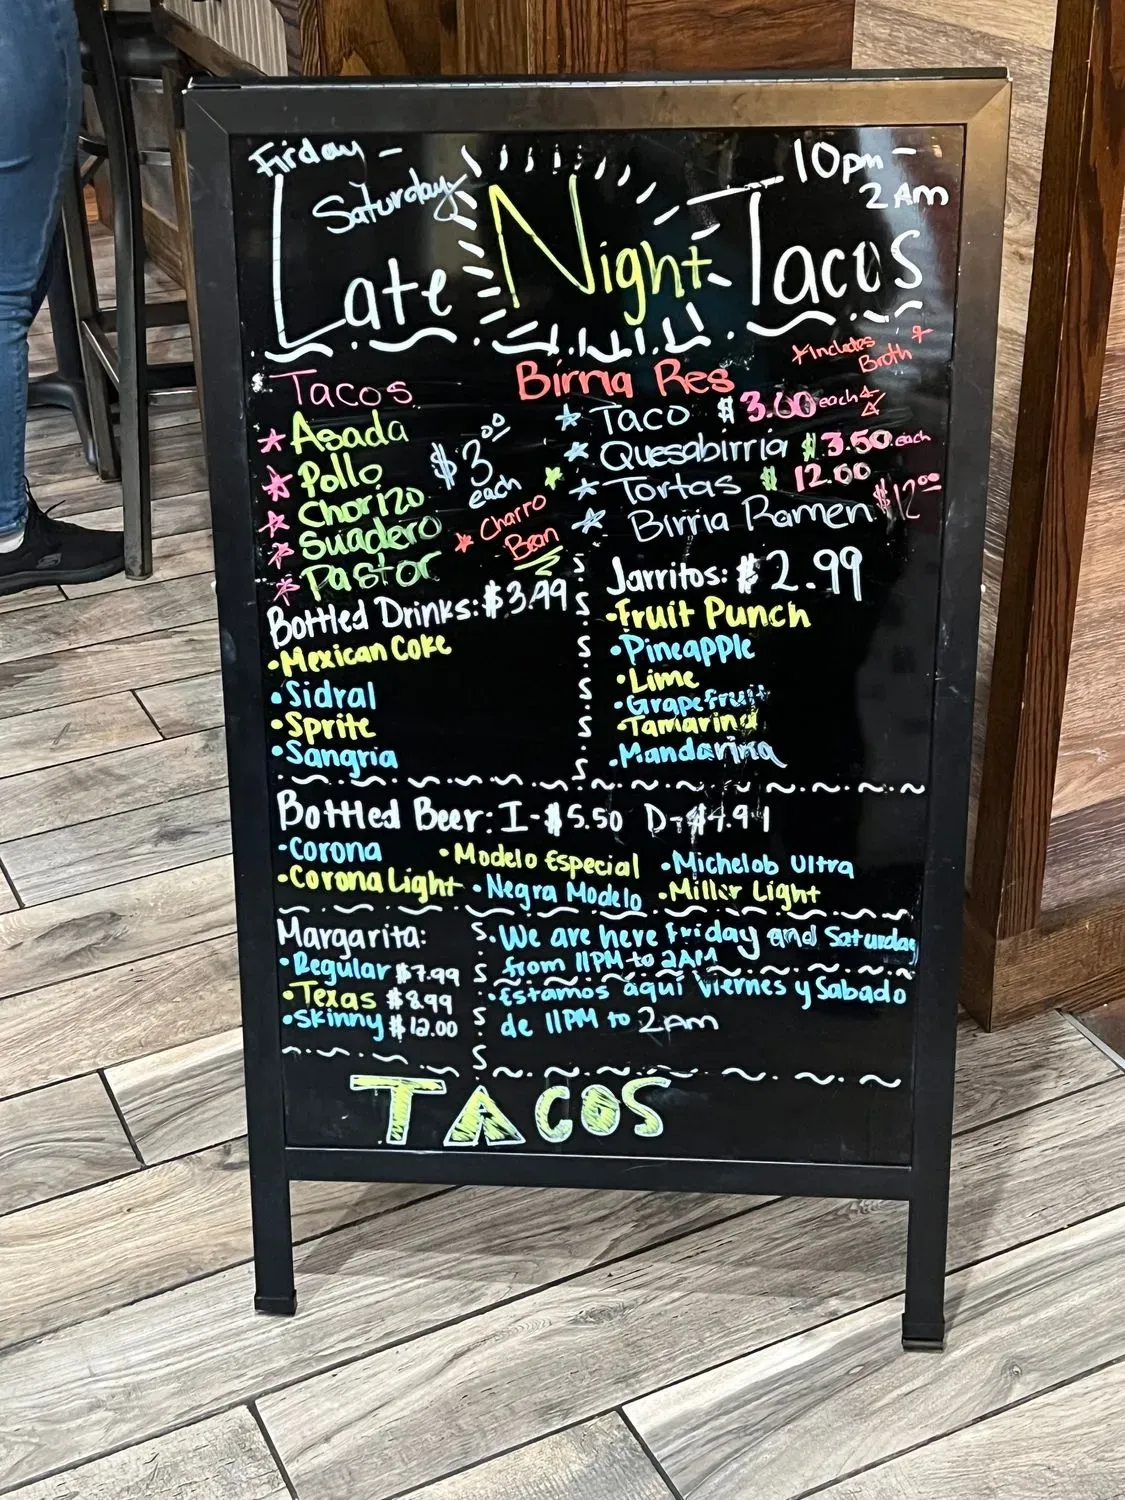 Firday –
Saturday
10pm –
2 Am
Late Night Tacos
Tacos
Asada
Pollo
Chorizo
Suadero
Pastor
$3.00
each
* Charro
Bean
Birria Res
*Includes *
Broth
Taco $3.00 each
Quesabirria $3.50 each
Tortas $12.00
Birria Ramen $12.00
Bottled Drinks: $3.49
•Mexican Coke
•Sidral
•Sprite
•Sangria
Jarritos: $2.99
•Fruit Punch
•Pineapple
•Lime
•Grapefruit
•Tamarind
•Mandarina
Bottled Beer: I-$5.50 D-
•Corona •Modelo Especial •Michelob Ultra
•Corona Light •Negra Modelo •Miller Light
Margarita:
•Regular $7.99
•Texas $8.99
•Skinny $12.00
•We are here Friday and Saturday
from 11PM to 2AM
•Estamos aquí Viernes y Sabado
de 11PM to 2Am
TACOS